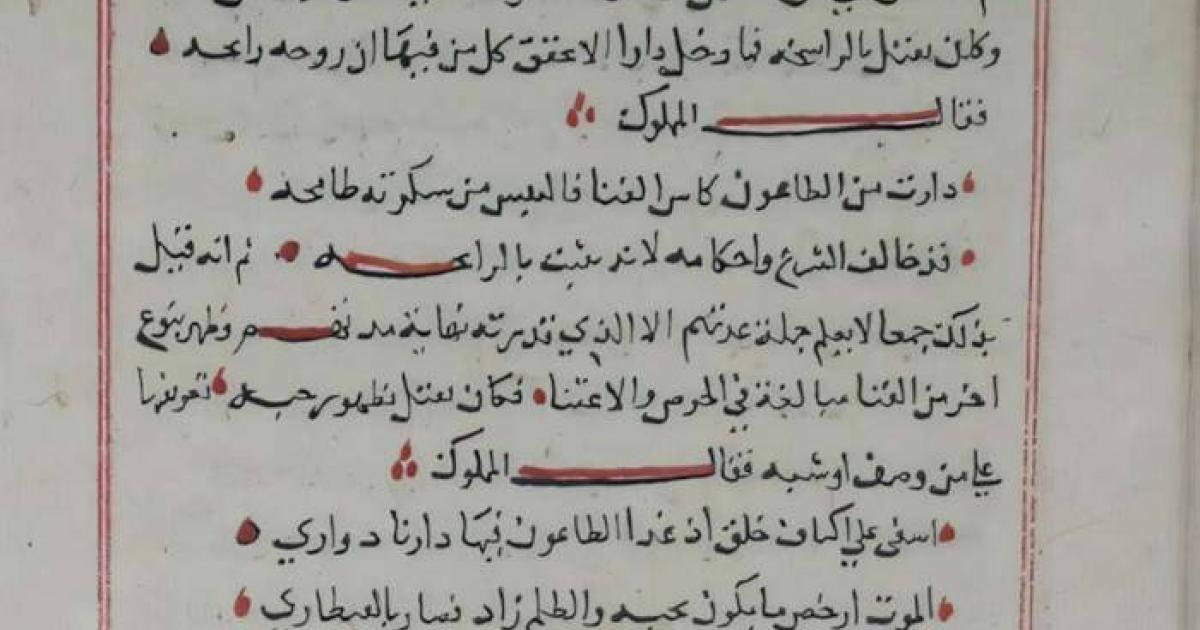 وكان يقتل بالرائحة فما دخل دارا الا تحقق كل من فيها ان روحه رائحه
فقال المملوك
دارت من الطاعون كاس الفنا فالنفس من سكرته طافحه
قد خالف الشرع واحكامه لانه يثبت بالرائحه ثم انه قتل
بذلك جمعا لا يعلم جملة عدتهم الا الذي قدرته نهاية مددهم وظهر بنوع
اخر من الفنا مبالغة في الحرص والاعتنا فكان يقتل بظهور حبه تعريفها
على من وصف او شبه فقال المملوك
اسفي على اكناف خلق اذ غدا الطاعون فيها دارنا دواري
الموت ارخص ما يكون بحبه والظلم زاد فصار بالقنطاري